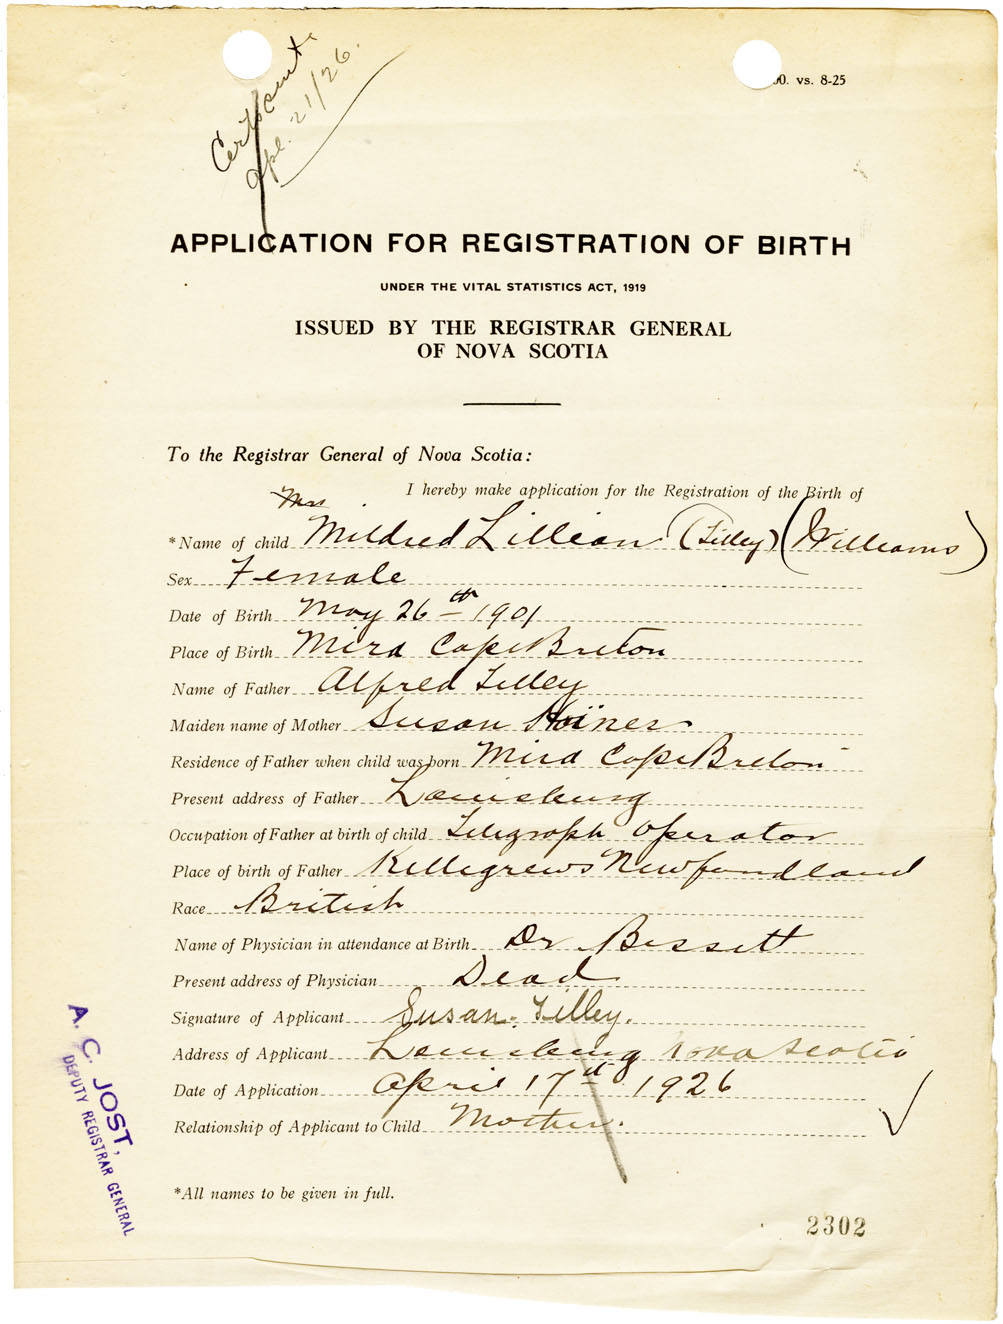 Certificate
Apl. 21/26.
00. vs. 8-25
APPLICATION FOR REGISTRATION OF BIRTH
UNDER THE VITAL STATISTICS ACT, 1919
ISSUED BY THE REGISTRAR GENERAL
OF NOVA SCOTIA
To the Registrar General of Nova Scotia:
I hereby make application for the Registration of the Birth of
Mrs
*Name of child Mildred Lillian (Tilley) (Williams)
Sex Female
Date of Birth May 26th 1901
Place of Birth Mira Cape Breton
Name of Father Alfred Tilley
Maiden name of Mother Susan
Residence of Father when child was born Mira Cape Breton
Present address of Father Louisburg
Occupation of Father at birth of child Telegraph Operator
Place of birth of Father Kelligrews Newfoundland
Race British
Name of Physician in attendance at Birth Dr Bissett
Present address of Physician Dead
Signature of Applicant Susan. Tilley.
Address of Applicant Louisburg Nova Scotia
Date of Application April 17th 1926
Relationship of Applicant to Child Mother.
*All names to be given in full.
A. C. JOST,
DEPUTY REGISTRAR GENERAL
2302